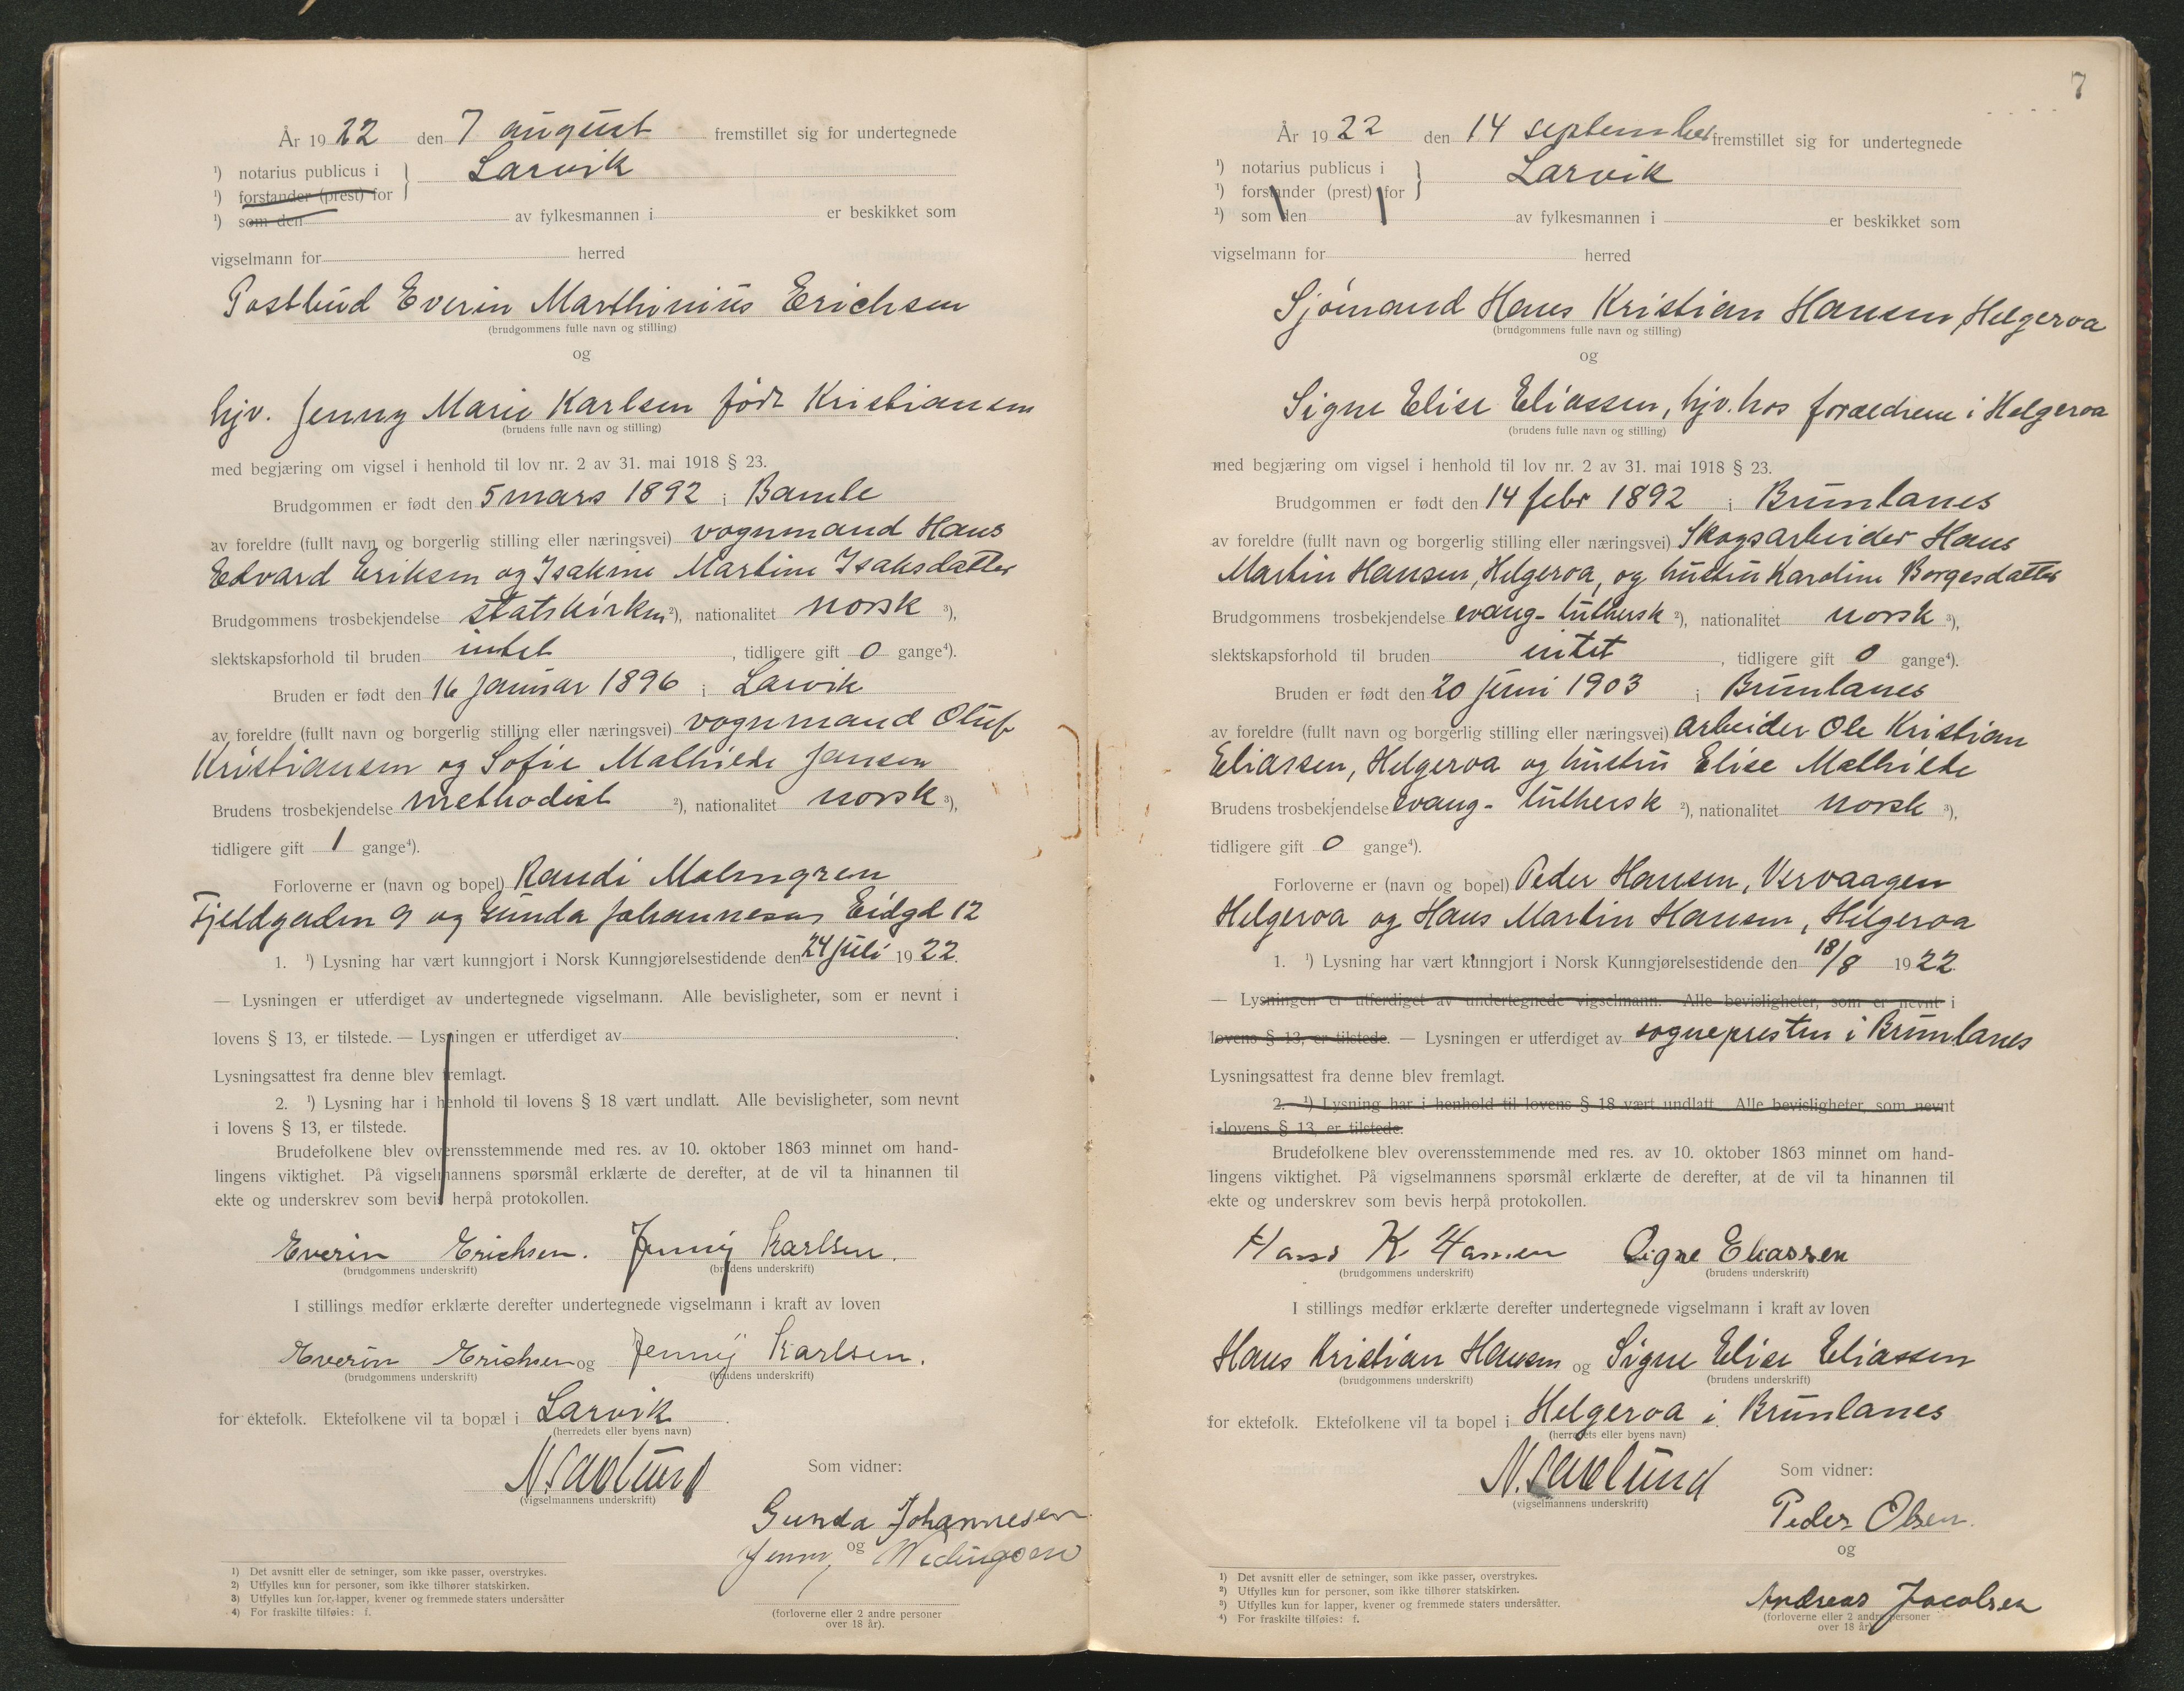 År 1922 den 7 august fremstillet sig for undertegnede
¹) notarius publicus i
¹) forstander (prest) for } Larvik
¹) som den av fylkesmannen i er beskikket som
vigselmann for herred
Postbud Everin Marthinius Erichsen
(brudgommens fulle navn og stilling)
og
hjv. Jenny Marie Karlsen født Kristiansen
(brudens fulle navn og stilling)
med begjæring om vigsel i henhold til lov nr. 2 av 31. mai 1918 § 23.
Brudgommen er født den 5 mars 1892 i Bamle
av foreldre (fullt navn og borgerlig stilling eller næringsvei) vognmand Hans
Edvard Eriksen og Isakine Martine Isaksdatter
Brudgommens trosbekjendelse statskirken ²), nationalitet norsk ³),
slektskapsforhold til bruden intet, tidligere gift 0 gange⁴).
Bruden er født den 16 januar 1896 i Larvik
av foreldre (fullt navn og borgerlig stilling eller næringsvei) vognmand Oluf
Kristiansen og Sofie Mathilde Jansen
Brudens trosbekjendelse methodist ²), nationalitet norsk ³),
tidligere gift 1 gange⁴).
Forloverne er (navn og bopel) Randi Malmgren
Fjeldgaden 9 og Gunda Johannesen Eidgd 12
1. ¹) Lysning har vært kunngjort i Norsk Kunngjørelsestidende den 24 juli 1922.
— Lysningen er utferdiget av undertegnede vigselmann. Alle bevisligheter, som er nevnt i
lovens § 13, er tilstede. — Lysningen er utferdiget av .
Lysningsattest fra denne blev fremlagt.
2. ¹) Lysning har i henhold til lovens § 18 vært undlatt. Alle bevisligheter, som nevnt
i lovens § 13, er tilstede.
Brudefolkene blev overensstemmende med res. av 10. oktober 1863 minnet om hand-
lingens viktighet. På vigselmannens spørsmål erklærte de derefter, at de vil ta hinannen til
ekte og underskrev som bevis herpå protokollen.
Everin Erichsen. Jenny Karlsen.
(brudgommens underskrift) (brudens underskrift)
I stillings medfør erklærte derefter undertegnede vigselmann i kraft av loven
Everin Erichsen og Jenny Karlsen.
(brudgommens underskrift) (brudens underskrift)
for ektefolk. Ektefolkene vil ta bopæl i Larvik.
(herredets eller byens navn)
(vigselmannens underskrift)
Som vidner:
Gunda Johannesen
og
Jenny
(forloverne eller 2 andre personer
over 18 år).
1) Det avsnitt eller de setninger, som ikke passer, overstrykes.
2) Utfylles kun for personer, som ikke tilhører statskirken.
3) Utfylles kun for lapper, kvener og fremmede staters undersåtter
4) For fraskilte tilføies: f.
7
År 1922 den 14 september fremstillet sig for undertegnede
¹) notarius publicus i
¹) forstander (prest) for } Larvik
¹) som den av fylkesmannen i er beskikket som
vigselmann for herred
Sjømand Hans Kristian Hansen, Helgeroa
(brudgommens fulle navn og stilling)
og
Signe Elise Eliassen, hjv. hos forældrene i Helgeroa
(brudens fulle navn og stilling)
med begjæring om vigsel i henhold til lov nr. 2 av 31. mai 1918 § 23.
Brudgommen er født den 14 febr 1892 i Brunlanes
av foreldre (fullt navn og borgerlig stilling eller næringsvei) Skogsarbeider Hans
Martin Hansen, Helgeroa, og hustru Karoline Borgesdatter
Brudgommens trosbekjendelse evang-luthersk ²), nationalitet norsk ³),
slektskapsforhold til bruden intet, tidligere gift 0 gange⁴).
Bruden er født den 20 juni 1903 i Brunlanes
av foreldre (fullt navn og borgerlig stilling eller næringsvei) arbeider Ole Kristian
Eliassen, Helgeroa og hustru Elise Mathilde
Brudens trosbekjendelse evang-luthersk ²), nationalitet norsk ³),
tidligere gift 0 gange⁴).
Forloverne er (navn og bopel) Peder Hansen, Vervaagen
Helgeroa og Hans Martin Hansen, Helgeroa
1. ¹) Lysning har vært kunngjort i Norsk Kunngjørelsestidende den 18/8 1922.
— Lysningen er utferdiget av undertegnede vigselmann. Alle bevisligheter, som er nevnt i
lovens § 13, er tilstede. — Lysningen er utferdiget av sognepresten i Brunlanes
Lysningsattest fra denne blev fremlagt.
2. ¹) Lysning har i henhold til lovens § 18 vært undlatt. Alle bevisligheter, som nevnt
i lovens § 13, er tilstede.
Brudefolkene blev overensstemmende med res. av 10. oktober 1863 minnet om hand-
lingens viktighet. På vigselmannens spørsmål erklærte de derefter, at de vil ta hinannen til
ekte og underskrev som bevis herpå protokollen.
Hans K Hansen Signe Eliassen
(brudgommens underskrift) (brudens underskrift)
I stillings medfør erklærte derefter undertegnede vigselmann i kraft av loven
Hans Kristian Hansen og Signe Elise Eliassen
(brudgommens underskrift) (brudens underskrift)
for ektefolk. Ektefolkene vil ta bopel i Helgeroa i Brunlanes
(herredets eller byens navn)
(vigselmannens underskrift)
Som vidner:
Peder Olsen.
og
Andreas Jacobsen
(forloverne eller 2 andre personer
over 18 år)
¹) Det avsnitt eller de setninger, som ikke passer, overstrykes.
²) Utfylles kun for personer, som ikke tilhører statskirken.
³) Utfylles kun for lapper, kvener og fremmede staters undersåtter.
⁴) For fraskilte tilføies: f.